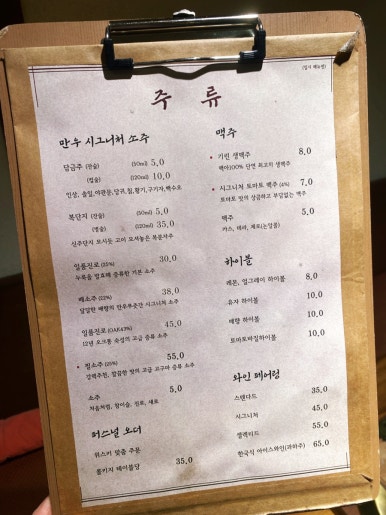 (링거 메뉴판)
주 류
만우 시그니처 소주
담금주 (잔술) (50ml) 5.0
(컵술) (120ml) 10.0
인삼, 솔잎, 야관문, 당귀, 칡, 황기, 구기자, 백수오
복단지 (잔술) (50ml) 5.0
(병술) (120ml) 35.0
신주단지 모시듯 고이 모셔놓은 복분자주
일품진로 (25%) 30.0
누룩을 발효해 증류한 기본 소주
매소주 (22%) 38.0
달달한 매향의 만우부줏간 시그니처 소주
일품진로 (OAK43%) 45.0
12년 오크통 숙성의 고급 증류 소주
• 필소주 (25%) 55.0
강력추천, 깔끔한 맛의 고급 고구마 증류 소주
소주 5.0
처음처럼, 참이슬, 진로, 새로
퍼스널 오더
위스키 맞춤 주문
콜키지 테이블당 35.0
맥주
• 기린 생맥주 8.0
맥아100% 단연 최고의 생맥주
• 시그니처 토마토 맥주 (4%) 7.0
토마토 맛의 상큼하고 부담없는 맥주
맥주 5.0
카스, 테라, 제로(논알콜)
하이볼
레몬, 얼그레이 하이볼 8.0
유자 하이볼 10.0
매향 하이볼 10.0
토마토바질하이볼 10.0
와인 페어링
스탠다드 35.0
시그니처 45.0
셀렉티드 55.0
한국식 아이스와인(과하주) 65.0